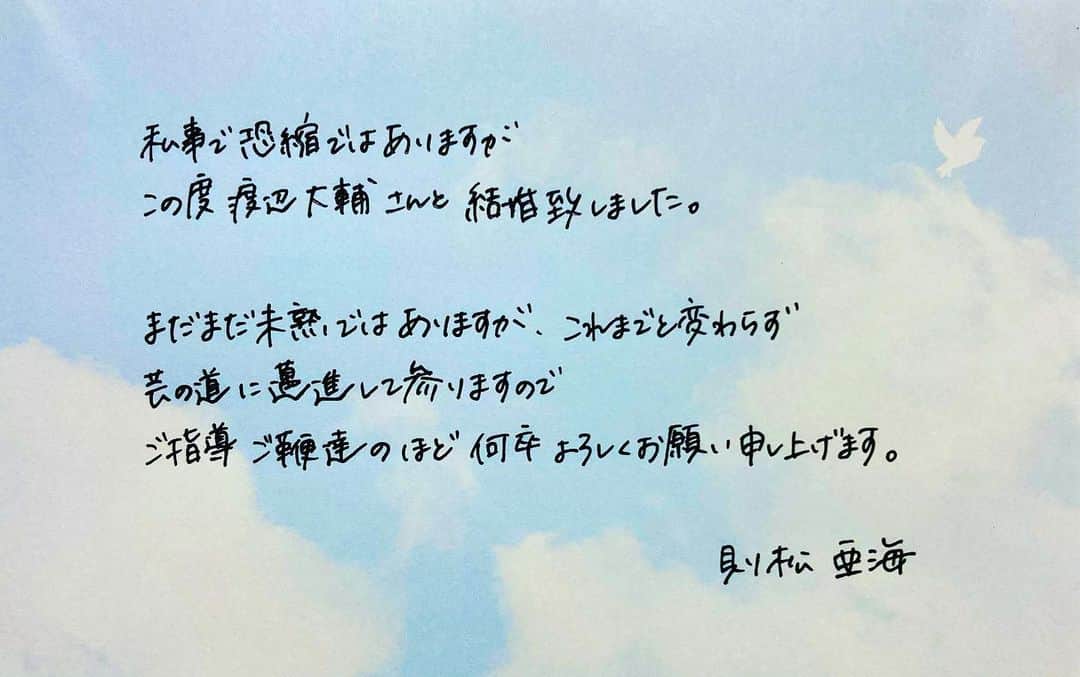 私事で恐縮ではありますが
この度 渡辺大輔さんと 結婚致しました。
まだまだ未熟ではありますが、これまでと変わらず
芸の道に邁進して参りますので
ご指導ご鞭達のほど 何卒よろしくお願い申し上げます。
則松亜海